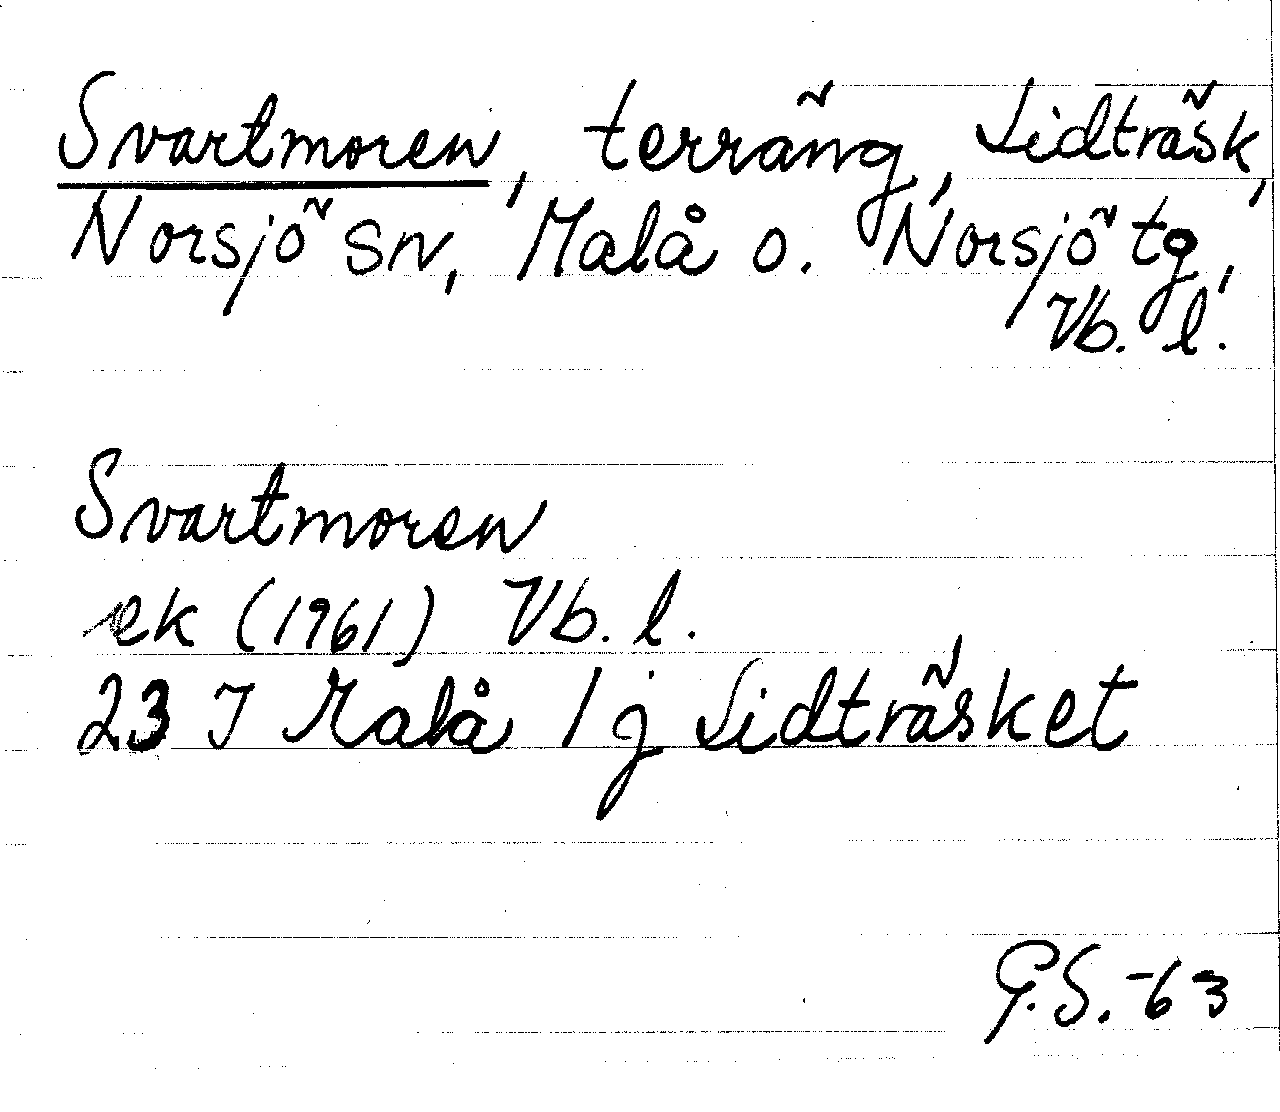 Svartmoren, terräng, Lidträsk,
Norsjö sn, Malå o. Norsjö tg,
Vb. l.
Svartmoren
ek (1961) Vb. l.
23 I Malå 1 j Lidträsket
G.S. -63